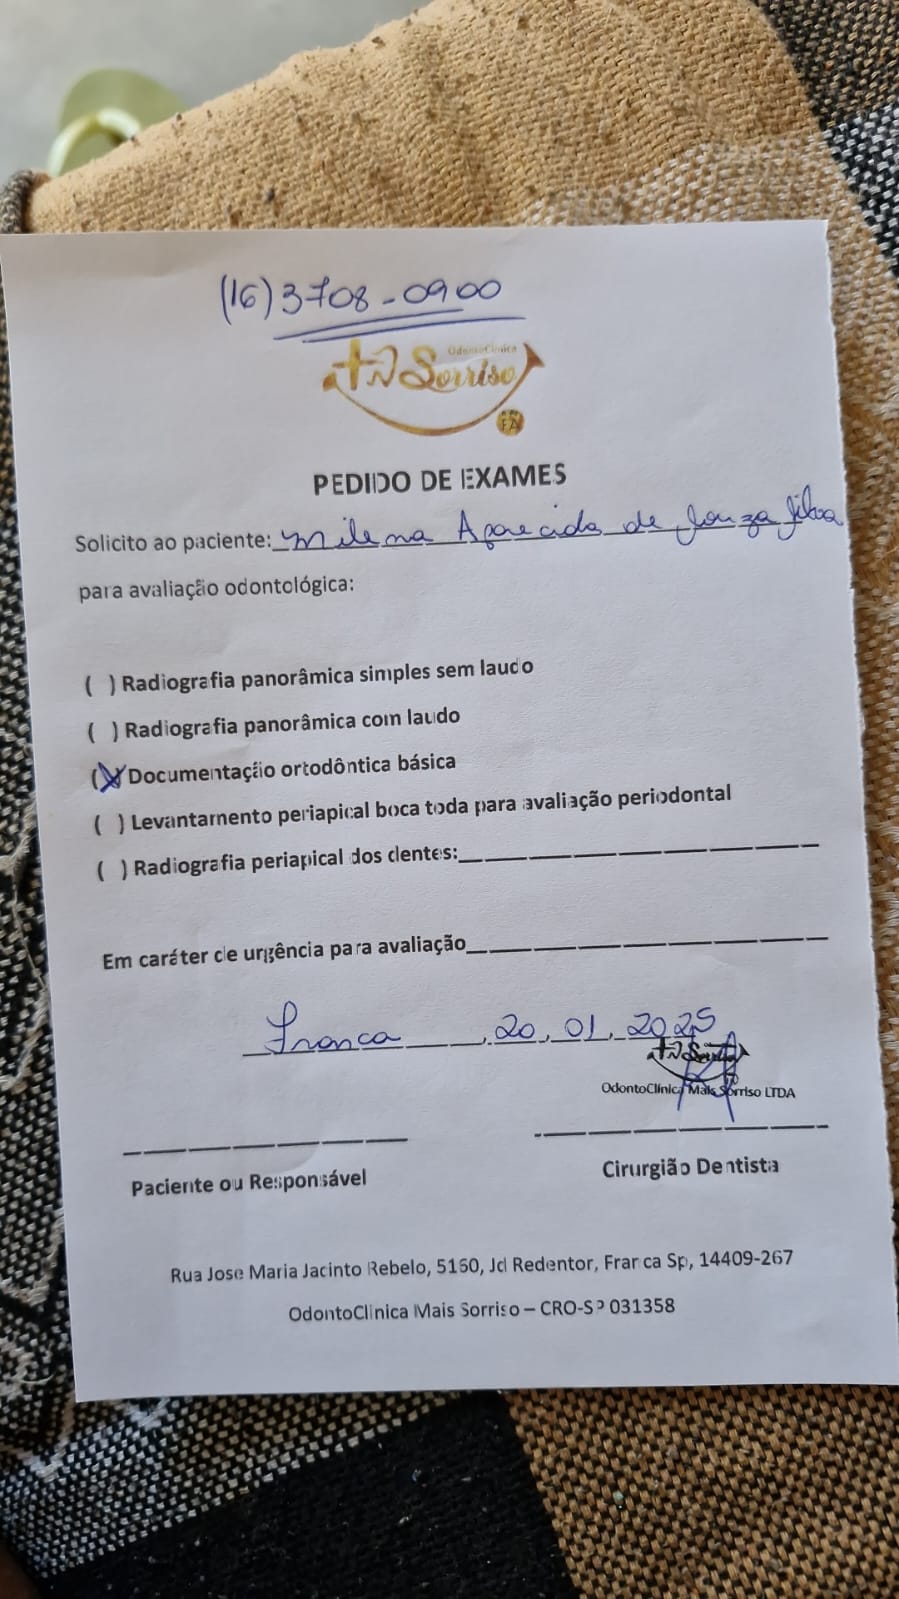 (16) 3708-0900
OdontoClínica
+ Sorriso
PEDIDO DE EXAMES
Solicito ao paciente: Milena Aparecida de Souza Silva
para avaliação odontológica:
( ) Radiografia panorâmica simples sem laudo
( ) Radiografia panorâmica com laudo
(X) Documentação ortodôntica básica
( ) Levantamento periapical boca toda para avaliação periodontal
( ) Radiografia periapical dos dentes:
Em caráter de urgência para avaliação
Franca, 20, 01, 2025
OdontoClínica Mais Sorriso LTDA
Paciente ou Responsável
Cirurgião Dentista
Rua Jose Maria Jacinto Rebelo, 5160, Jd Redentor, Franca Sp, 14409-267
OdontoClínica Mais Sorriso – CRO-SP 031358